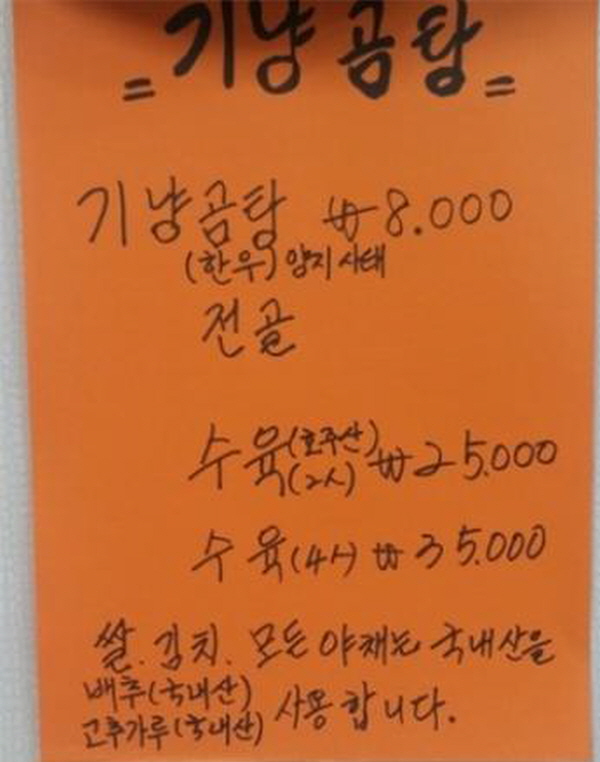 = 기냥곰탕 =
기냥곰탕 ₩8.000
(한우) 양지사태
전골
수육(호주산)(2人) ₩25.000
수육(4人) ₩35.000
쌀. 김치. 모든 야채는 국내산을
배추(국내산)
고추가루(국내산) 사용합니다.